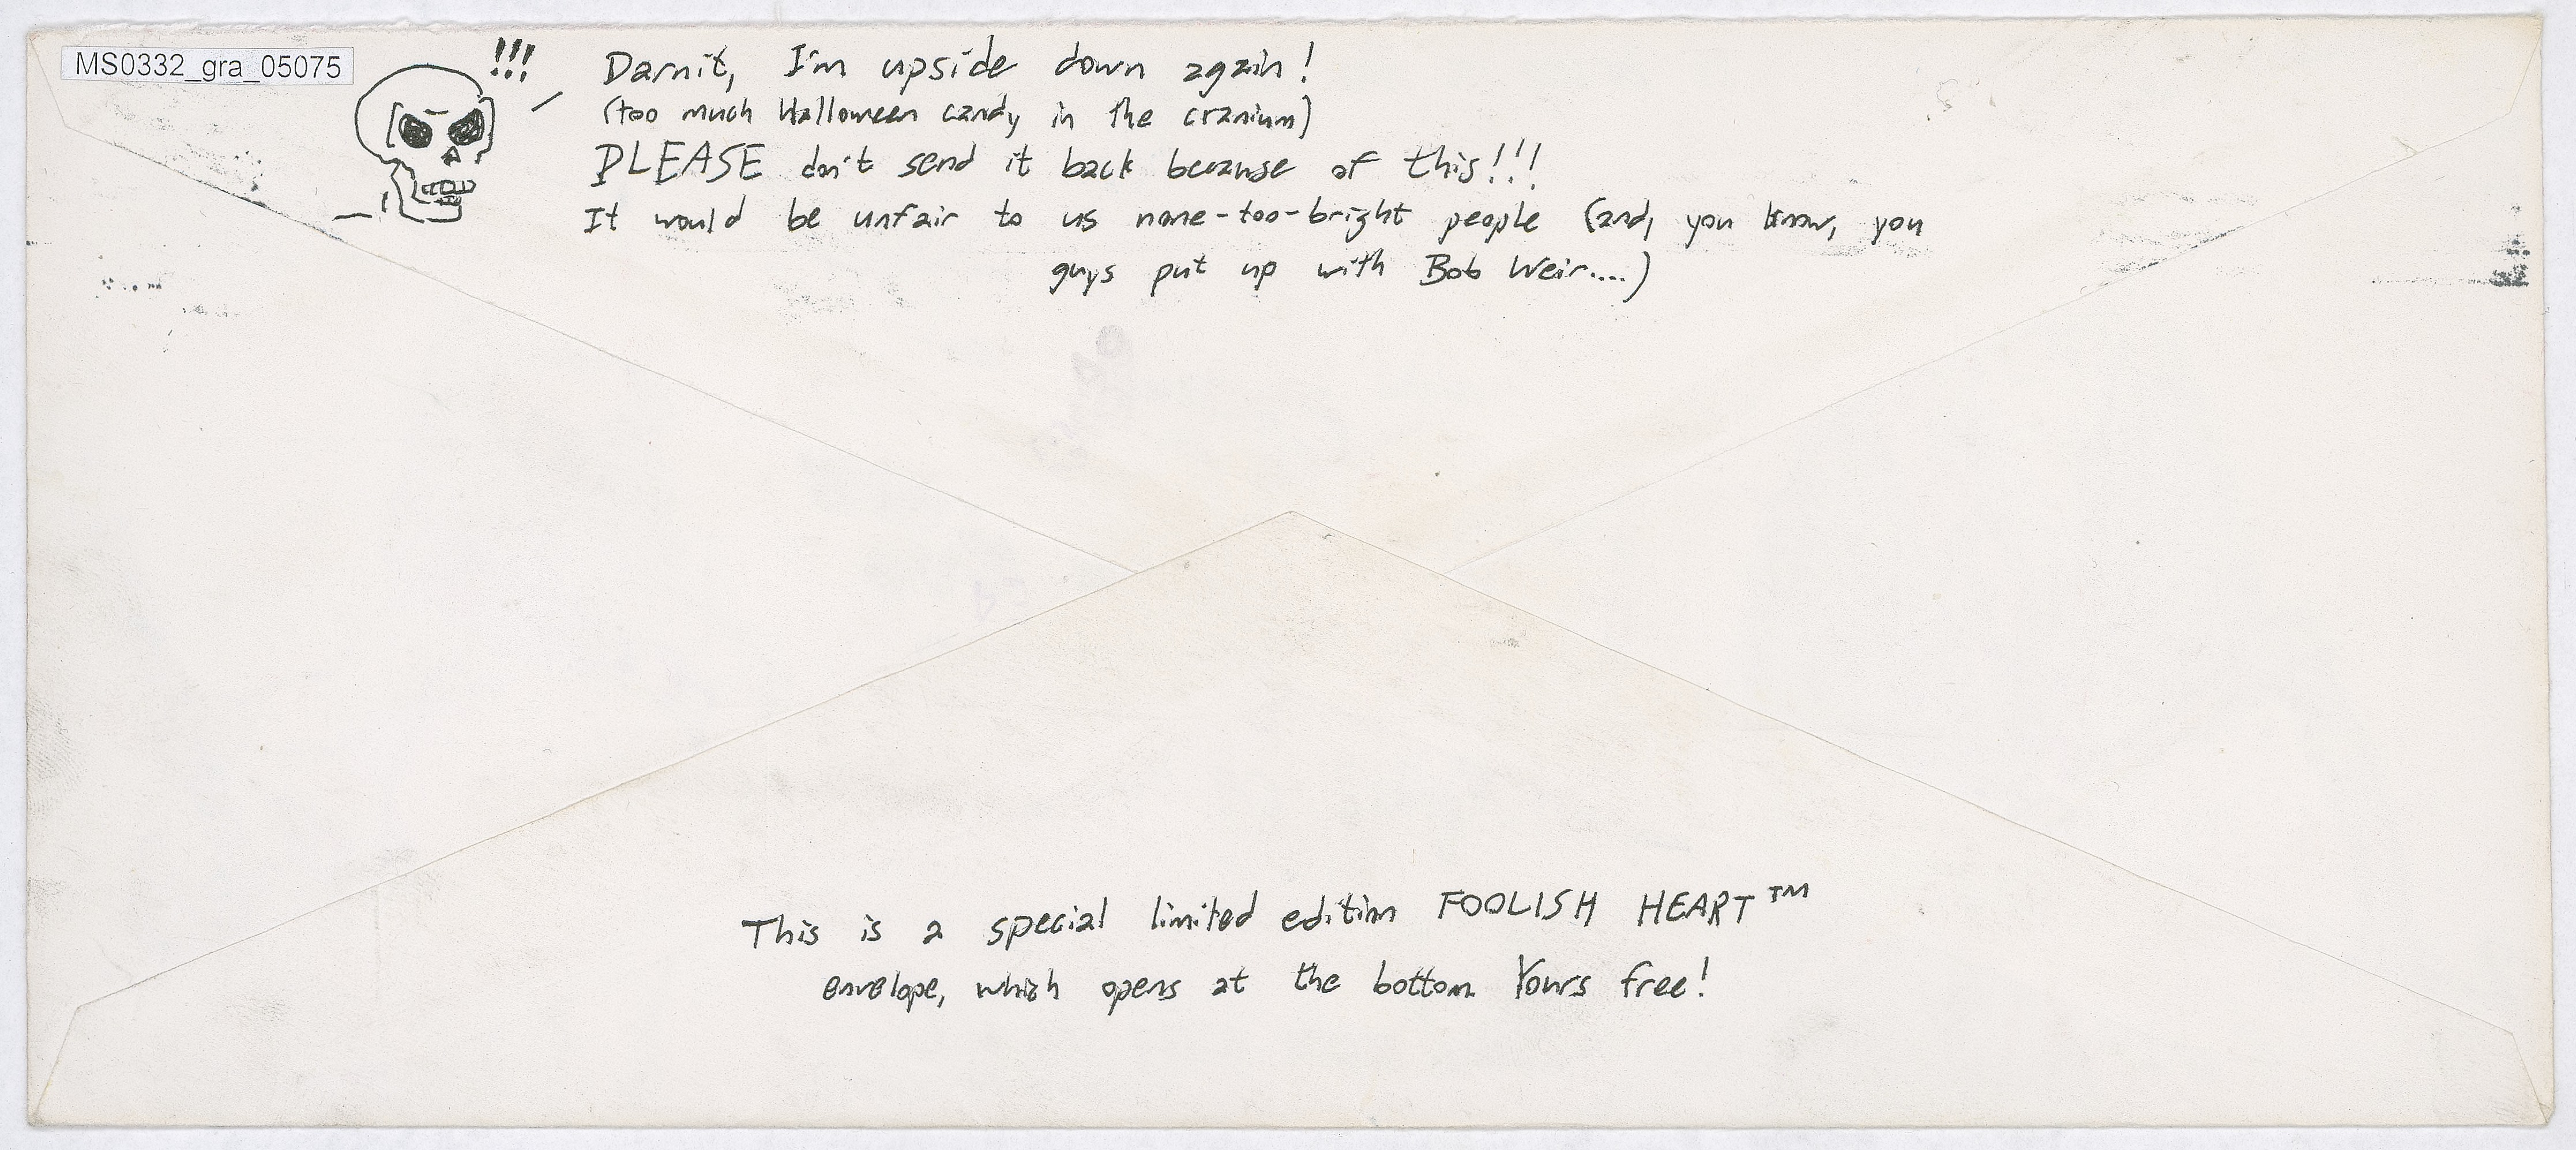 MS0332_gra_05075
!!!
Darnit, I'm upside down again!
(too much Halloween candy in the cranium)
PLEASE don't send it back because of this!!!
It would be unfair to us none-too-bright people (and, you know, you
guys put up with Bob Weir....)
This is a special limited edition FOOLISH HEART™
envelope, which opens at the bottom. Yours free!